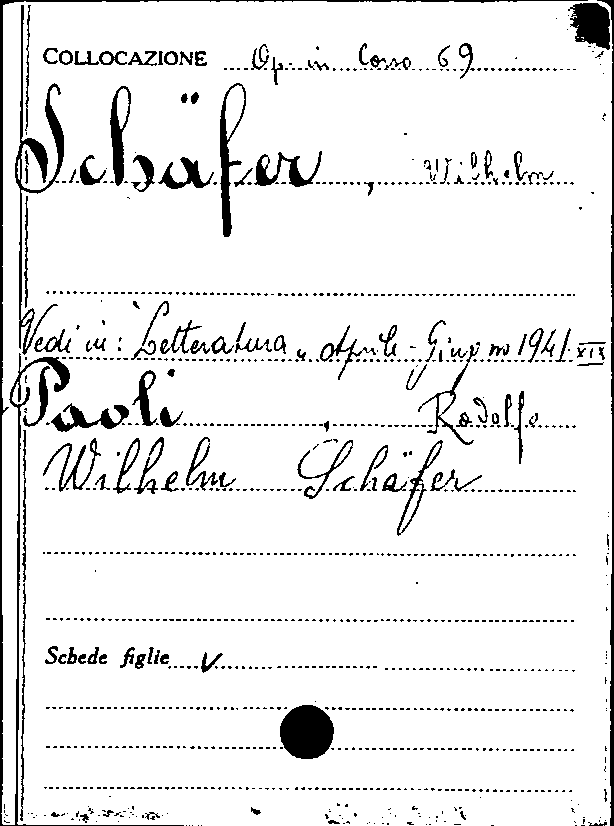 COLLOCAZIONE Op. in Corso 69
Schäfer, Wilhelm
Vedi in: "Letteratura" Aprile - Giugno 1941 XIX
Paoli, Rodolfo
Wilhelm Schäfer
Schede figlie V